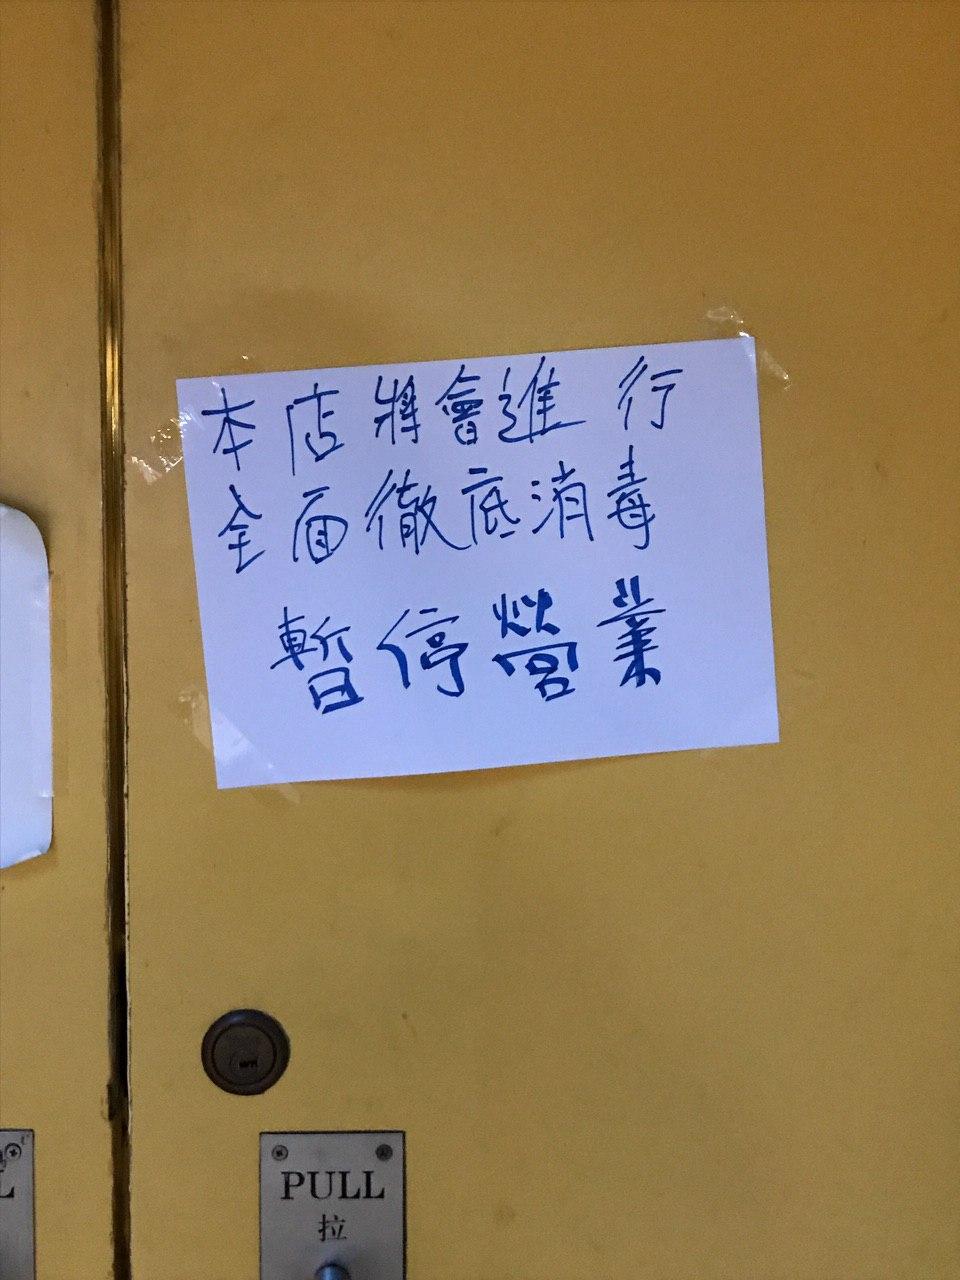 本店將會進行
全面徹底消毒
暫停營業
PULL
拉
L